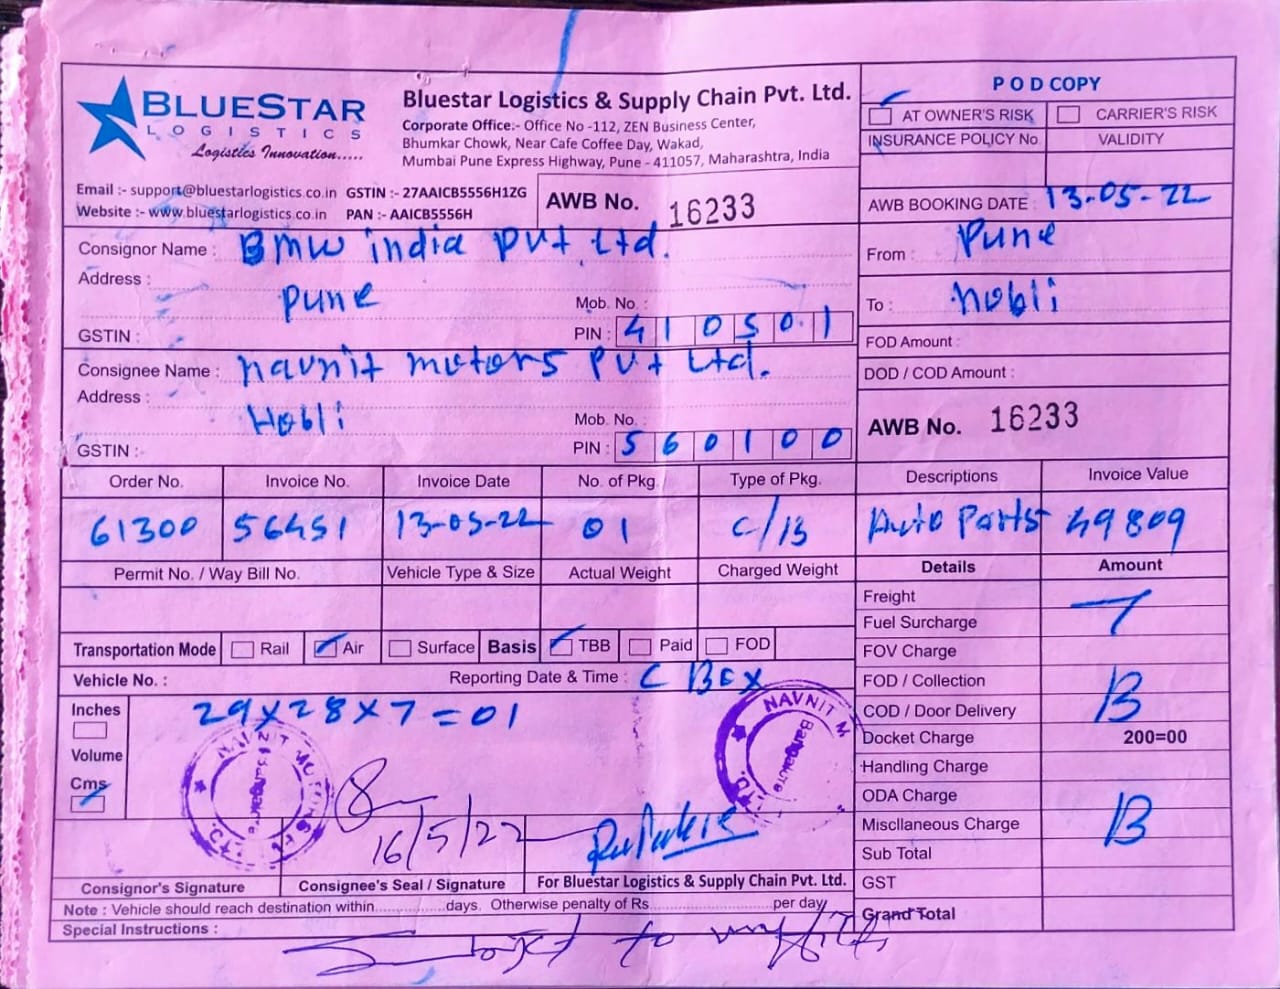 BLUESTAR
LOGISTICS
Logistics Innovation.....
Bluestar Logistics & Supply Chain Pvt. Ltd.
Corporate Office:- Office No -112, ZEN Business Center,
Bhumkar Chowk, Near Cafe Coffee Day, Wakad,
Mumbai Pune Express Highway, Pune - 411057, Maharashtra, India
Email :- support@bluestarlogistics.co.in GSTIN :- 27AAICB5556H1ZG
Website :- www.bluestarlogistics.co.in PAN :- AAICB5556H
AWB No. 16233
POD COPY
AT OWNER'S RISK CARRIER'S RISK
INSURANCE POLICY No VALIDITY
AWB BOOKING DATE : 13-05-22
From : Pune
To : Hobli
FOD Amount :
DOD / COD Amount :
AWB No. 16233
Consignor Name : BMW india Pvt Ltd.
Address :
Pune Mob. No. :
GSTIN : PIN : 410501
Consignee Name : Navnit motors Pvt Ltd.
Address :
Hobli Mob. No.
GSTIN :- PIN : 560100
Order No. Invoice No. Invoice Date No. of Pkg. Type of Pkg. Descriptions Invoice Value
61300 56451 13-05-22 01 C/B Auto Parts 49809
Permit No. / Way Bill No. Vehicle Type & Size Actual Weight Charged Weight Details Amount
Transportation Mode Rail Air Surface Basis TBB Paid FOD
Vehicle No. : Reporting Date & Time : C BEX
Inches
Volume
Cms
29X28X7=01
NAVNIT M
Bangalore
LTD.
Bangalore
16/5/22
Freight
Fuel Surcharge
FOV Charge
FOD / Collection
COD / Door Delivery
Docket Charge 200=00
Handling Charge
ODA Charge
Miscllaneous Charge
Sub Total
GST
Grand Total
T
B
B
Consignor's Signature Consignee's Seal / Signature For Bluestar Logistics & Supply Chain Pvt. Ltd.
Note : Vehicle should reach destination within................days. Otherwise penalty of Rs...........................per day
Special Instructions :